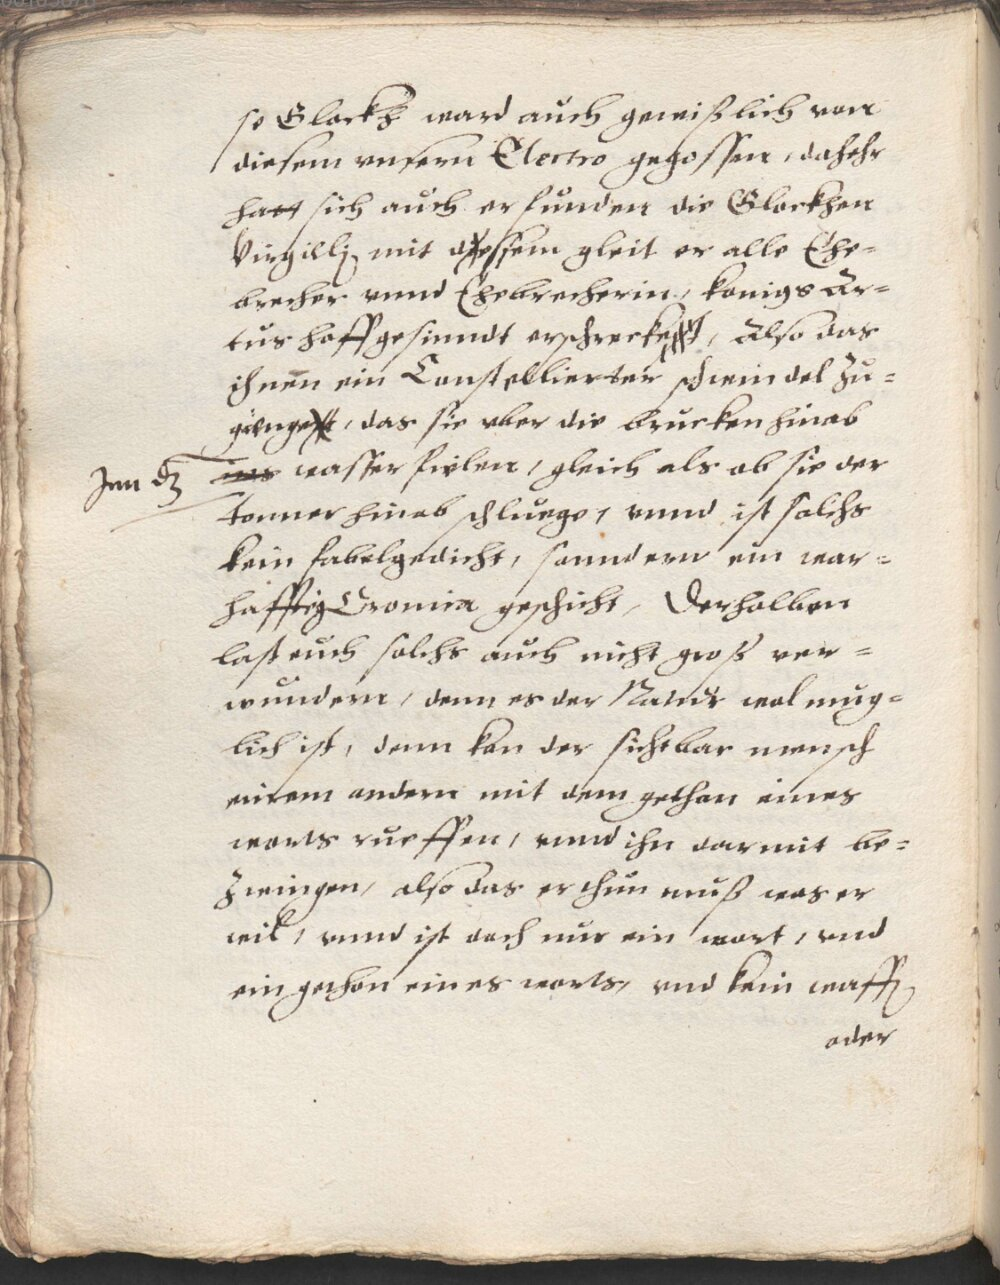 so Glockh ward auch gewißlich von
diesem vnsern Electro gegossen, dahehr
hatt sich auch erfunden die Glockhen
Virgillj, mit dessem gleit er alle Ehe=
brecher vnnd Ehebrecherin, konigs Ar=
tus hoffgesinndt erschreckett, Also das
ihnen ein Constellierter schwindel Zu=
gienge, das sie vber die brucken hinab
Jnn dz
ins wasser fielen, gleich als ob sie der
tonner hinab schluege, vnnd ist solchs
kein fabelgedicht, sonndern ein war=
hafftig Cronica geschicht, Derhalben
last euch solchs auch nicht groß ver=
wundern, denn es der Natur wol mug=
lich ist, denn kan der sichtbar mensch
einem andern mit dem gethon eines
worts rueffen, vnnd ihn darmit be=
Zwingen, also das er thun muß was er
wil, vnnd ist doch nur ein wort, vnd
ein gethon eines worts, vnd kein waff
oder